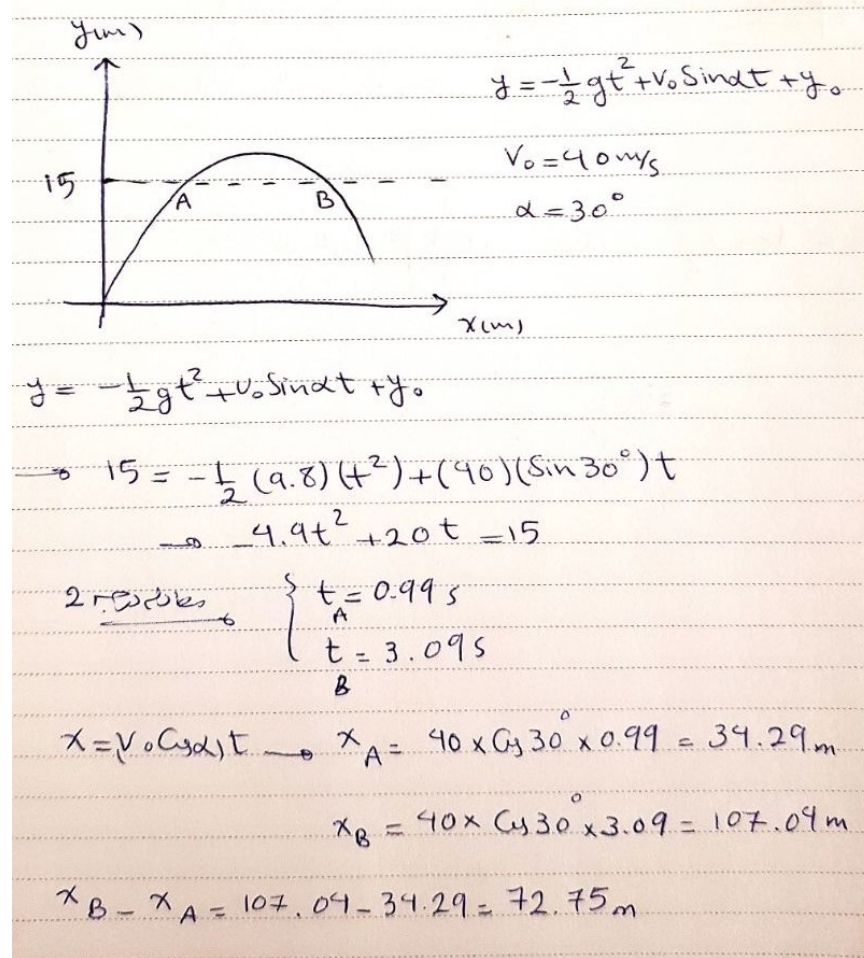 y(m)
y = -1/2 gt² + V₀ Sinαt + y₀
V₀ = 40 m/s
15
A
B
α = 30°
x(m)
y = -1/2 gt² + V₀ Sinαt + y₀
→ 15 = -1/2 (9.8)(t²) + (40)(Sin 30°) t
→ -4.9t² + 20t = 15
2 → { t_A = 0.99 s
t_B = 3.09 s
x = (V₀ Cosα) t → x_A = 40 × Cos 30° × 0.99 = 34.29 m
x_B = 40 × Cos 30° × 3.09 = 107.04 m
x_B - x_A = 107.04 - 34.29 = 72.75 m